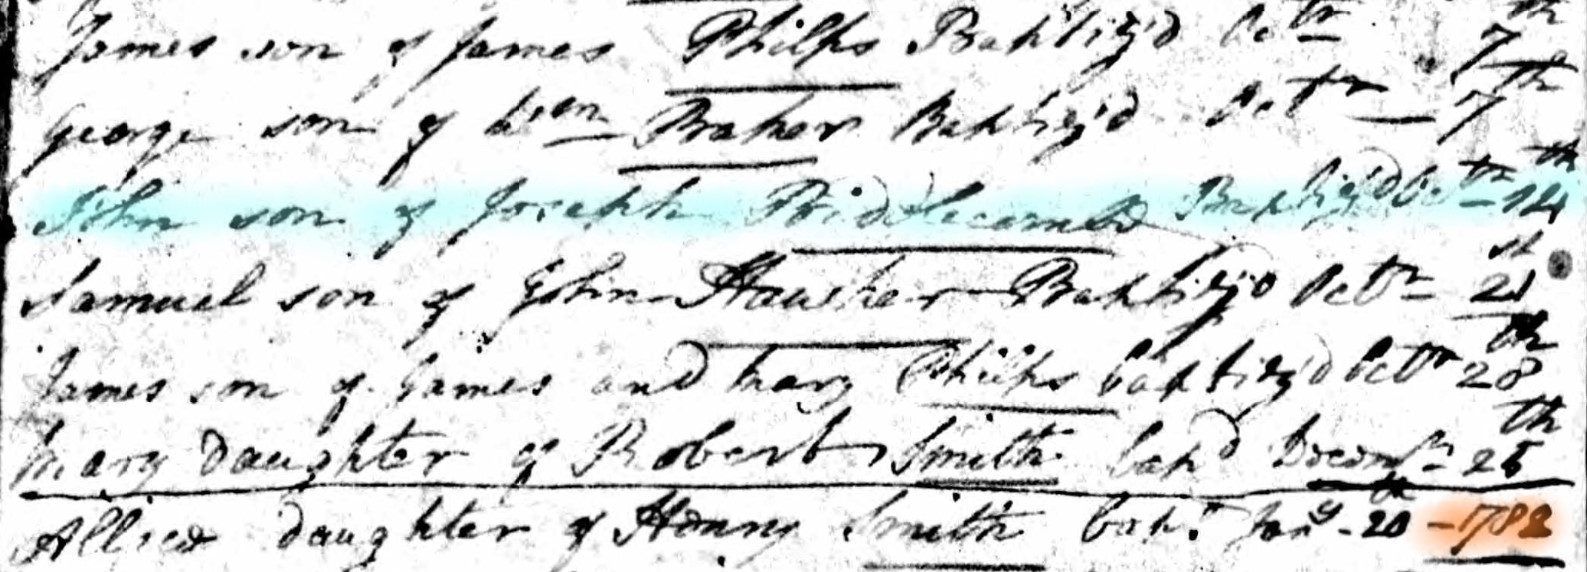 James son of James Philps Baptiz'd Octr 7th
George son of Wm Braher Baptiz'd Octr 7th
John son of Joseph Biddlecomb Baptiz'd Octr 14th
Samuel son of John Hawker Baptiz'd Octr 21st
James son of James and Mary Philps baptiz'd Octr 28th
Mary Daughter of Robert Smith bapd Decemr 25th
daughter of Henry Smith bap. Jany 20th 1782